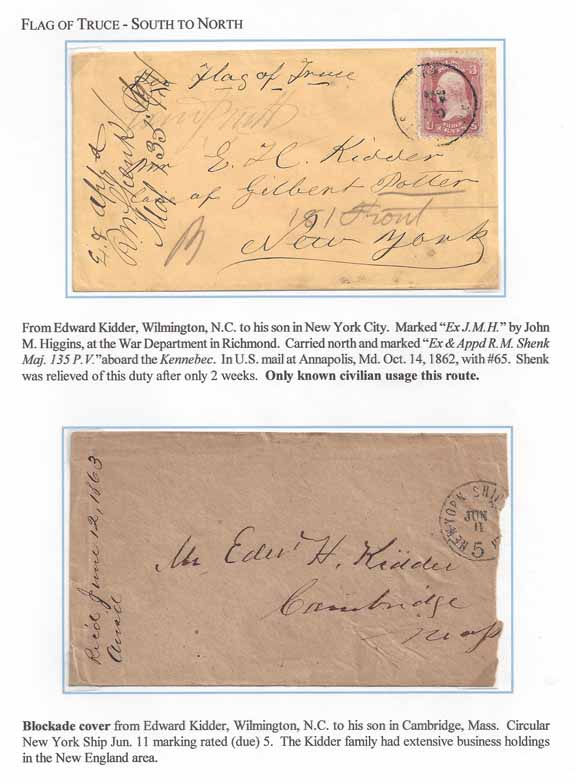 FLAG OF TRUCE - SOUTH TO NORTH
Flag of Truce
Ex & App d
R M Shenk
Maj 135 P.V.
Mr E. H. Kidder
Care of Gilbert Potter
181 Front
New York
From Edward Kidder, Wilmington, N.C. to his son in New York City. Marked “Ex J.M.H.” by John
M. Higgins, at the War Department in Richmond. Carried north and marked “Ex & Appd R.M. Shenk
Maj. 135 P.V.”aboard the Kennebec. In U.S. mail at Annapolis, Md. Oct. 14, 1862, with #65. Shenk
was relieved of this duty after only 2 weeks. Only known civilian usage this route.
Rec'd June 12, 1863
Ansd
NEW YORK SHIP
JUN
11
5
Mr Edwd H. Kidder
Cambridge
Mass
Blockade cover from Edward Kidder, Wilmington, N.C. to his son in Cambridge, Mass. Circular
New York Ship Jun. 11 marking rated (due) 5. The Kidder family had extensive business holdings
in the New England area.